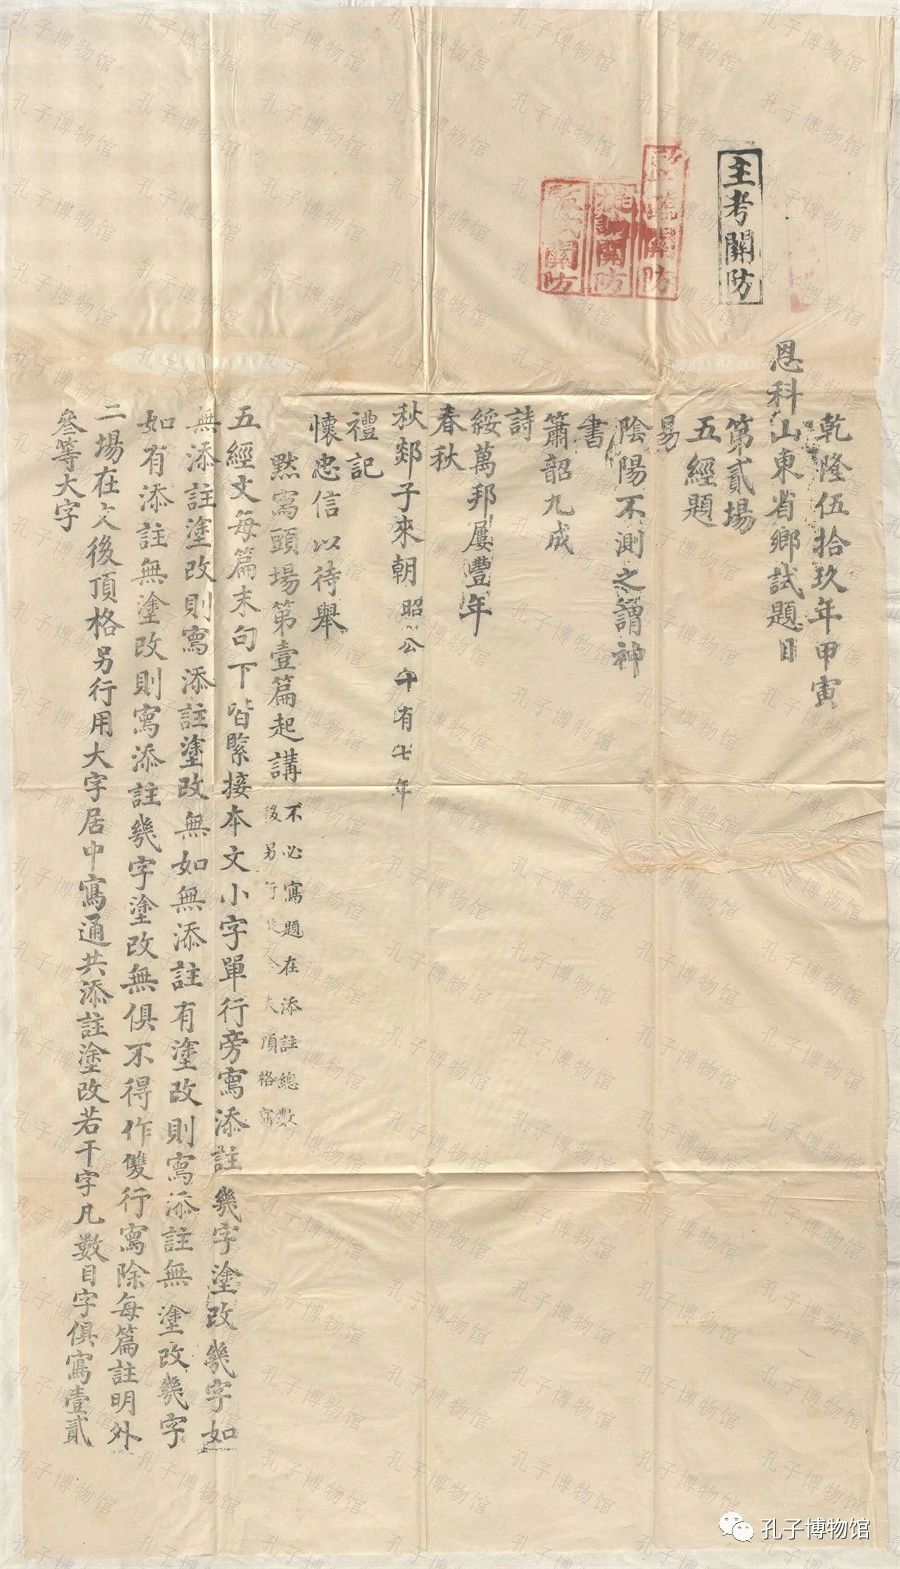 乾隆伍拾玖年甲寅
恩科山東省鄉試題目
第貳場
五經題
易
陰陽不測之謂神
書
簫韶九成
詩
綏萬邦屢豐年
春秋
秋郯子來朝 昭公十有七年
禮記
懷忠信以待舉
默寫頭場第壹篇起講 不必寫題在添註總數
後另行 頂格寫
五經文每篇末句下皆緊接本文小字單行旁寫添註幾字塗改幾字如
無添註塗改則寫添註塗改無如無添註有塗改則寫添註無塗改幾字
如有添註無塗改則寫添註幾字塗改無俱不得作雙行寫除每篇註明外
二場在文後頂格另行用大字居中寫通共添註塗改若干字凡數目字俱寫壹貳
叁等大字
主考關防
關防
關防
關防
孔子博物馆